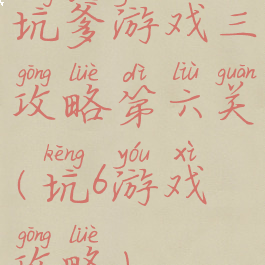 坑爹游戏三
gōng lüè dì liù guān
攻略第六关
kēng yóu xì
(坑6游戏
gōng lüè
攻略)